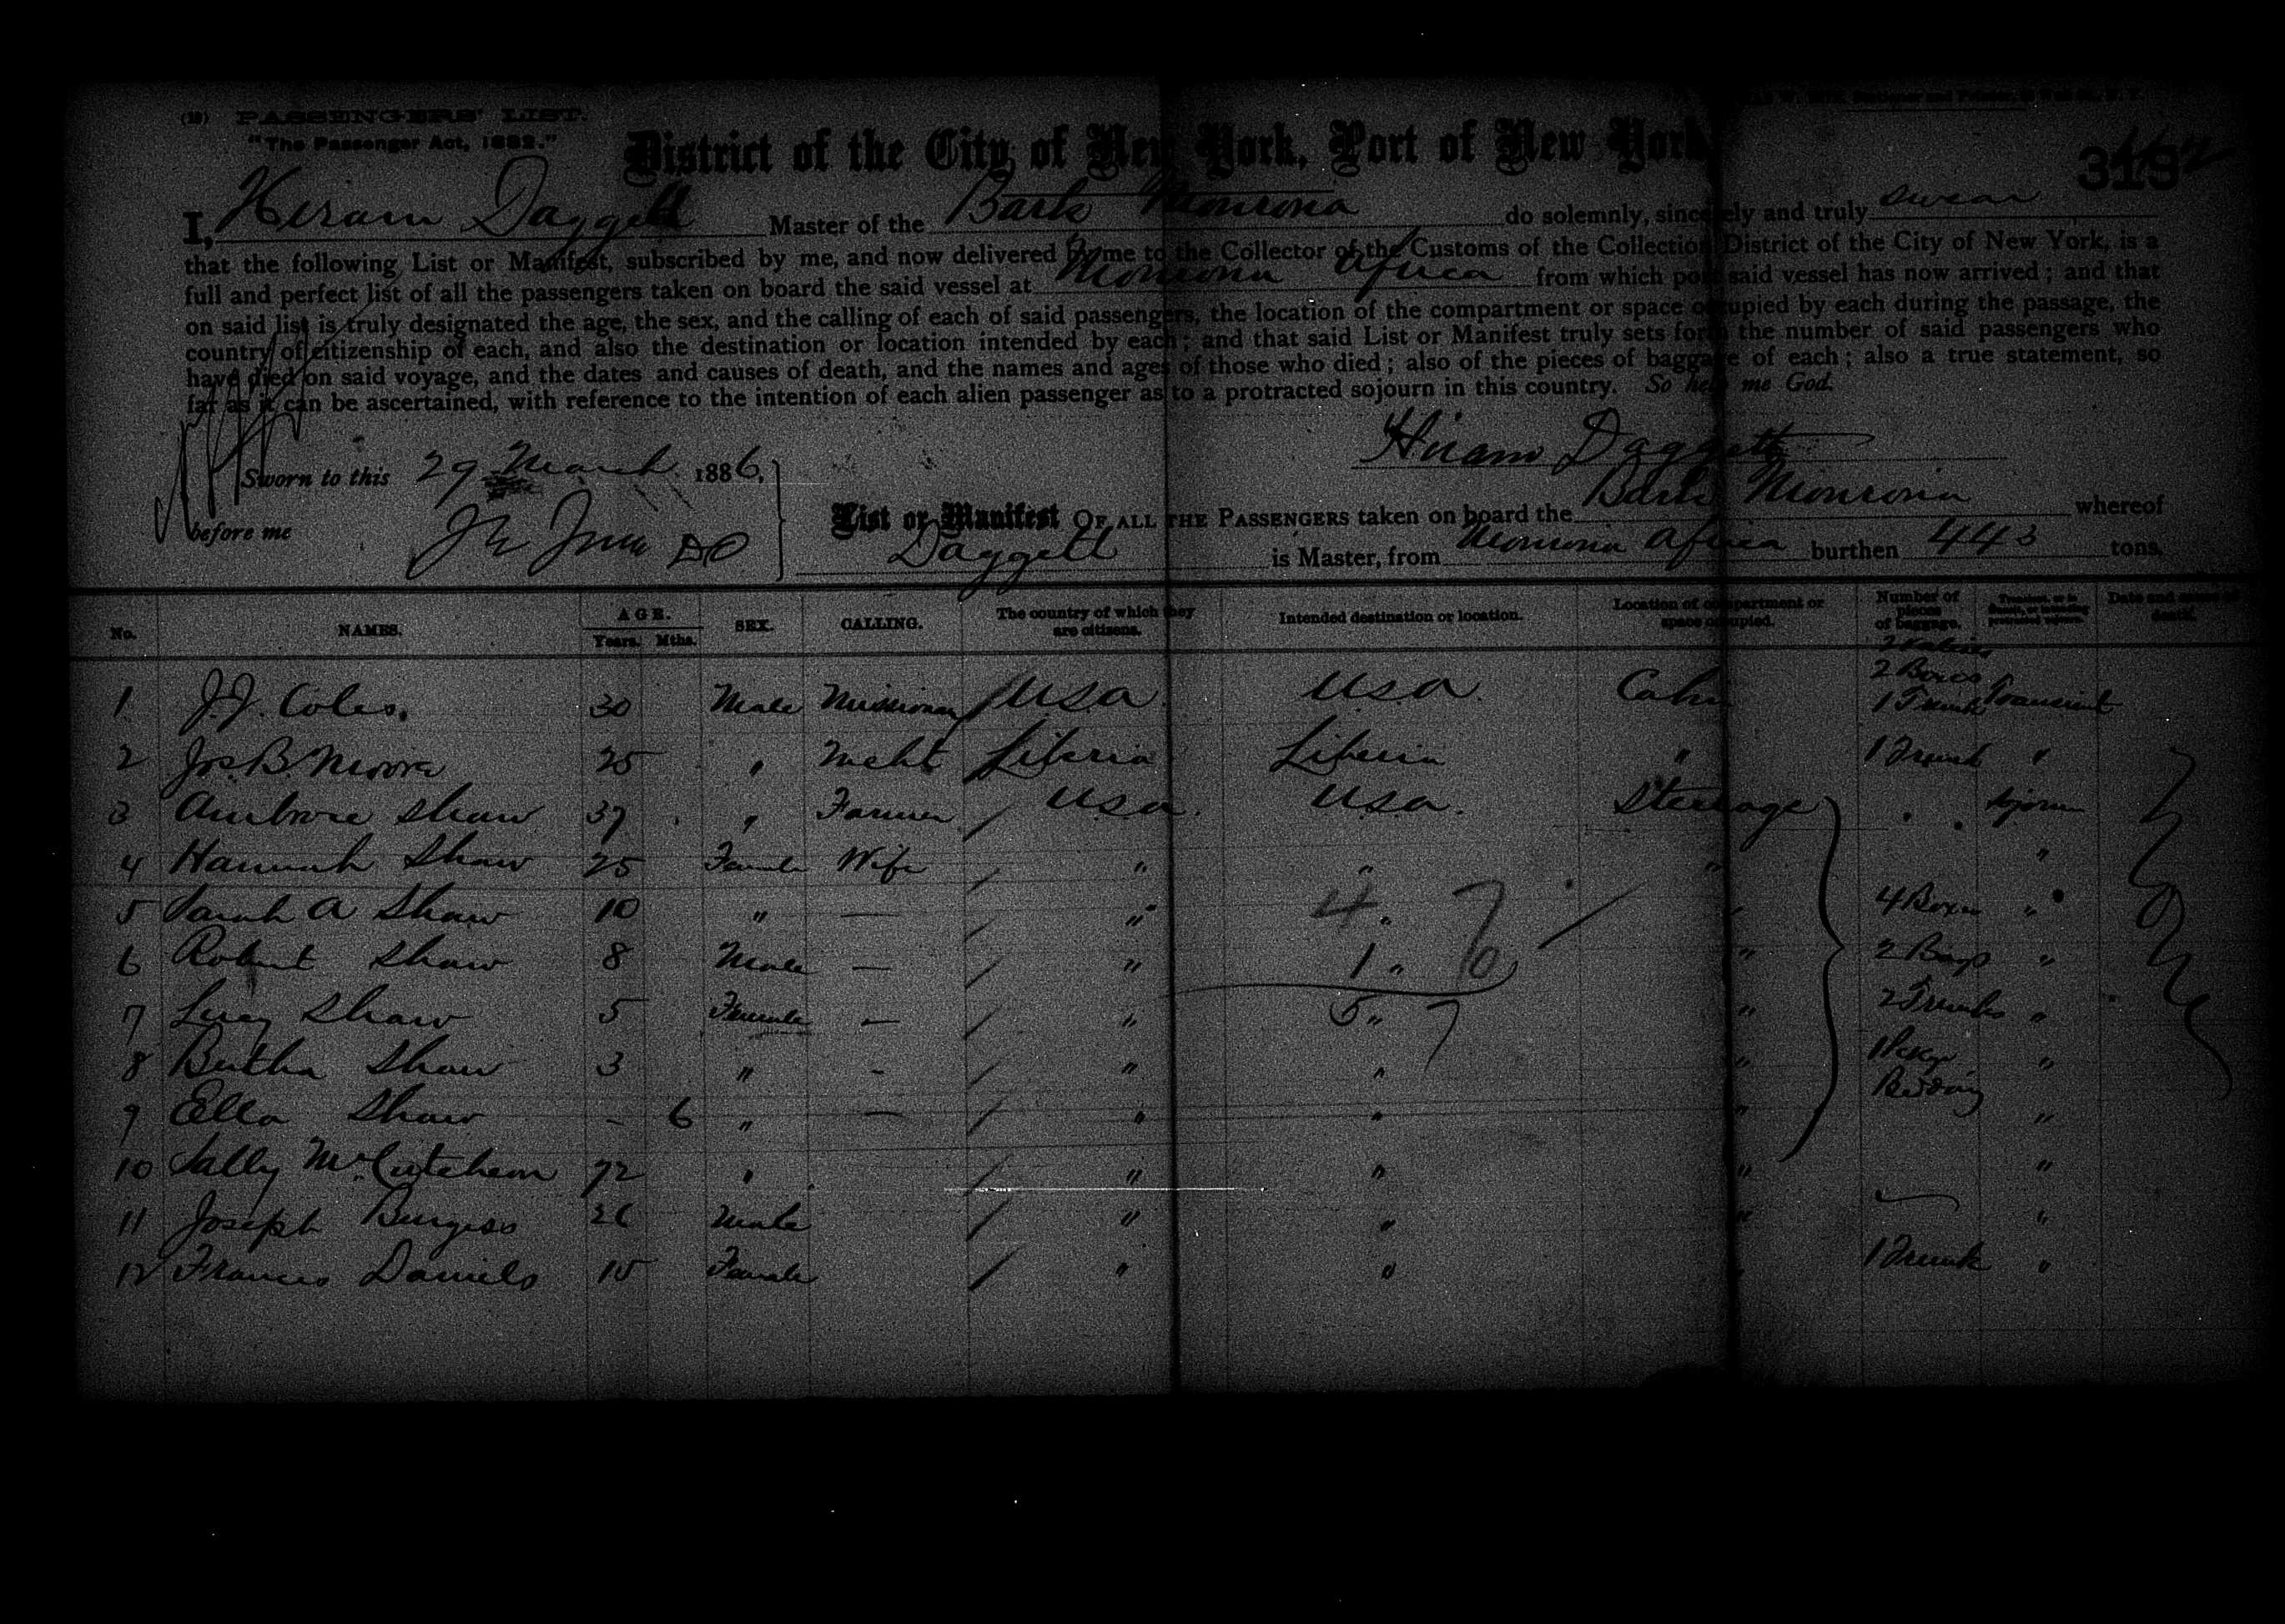 (B) PASSENGERS' LIST.
"The Passenger Act, 1882."
District of the City of New York, Port of New York
I, Hiram Daggett Master of the Bark Monrovia do solemnly, sincerely and truly swear
that the following List or Manifest, subscribed by me, and now delivered by me to the Collector of the Customs of the Collection District of the City of New York, is a
full and perfect list of all the passengers taken on board the said vessel at Monrovia Africa from which port said vessel has now arrived; and that
on said list is truly designated the age, the sex, and the calling of each of said passengers, the location of the compartment or space occupied by each during the passage, the
country of citizenship of each, and also the destination or location intended by each; and that said List or Manifest truly sets forth the number of said passengers who
have died on said voyage, and the dates and causes of death, and the names and ages of those who died; also of the pieces of baggage of each; also a true statement, so
far as it can be ascertained, with reference to the intention of each alien passenger as to a protracted sojourn in this country. So help me God.
Hiram Daggett
Sworn to this 29 March 1886,
before me
List or Manifest OF ALL THE PASSENGERS taken on board the Bark Monrovia whereof
Daggett is Master, from Monrovia Africa burthen 443 tons.
No. NAMES. AGE. Years. Mths. SEX. CALLING. The country of which they are citizens. Intended destination or location. Location of compartment or space occupied. Number of pieces of baggage. Date and cause of death.
1 J.J. Coles. 30 Male Missionary USA USA Cabin 2 Boxes 1 Trunk Transient
2 Jos. B. Moore 25 " Mcht Liberia Liberia " 1 Trunk "
3 Ambrose Shaw 37 " Farmer USA. USA. Steerage
4 Hannah Shaw 25 Female Wife " " " "
5 Sarah A Shaw 10 " — " 4 " " 4 Boxes "
6 Robert Shaw 8 Male — " 1 " " 2 Bags "
7 Lucy Shaw 5 Female — " 5 " " 2 Trunks "
8 Bertha Shaw 3 " - " " " 1 Pckge Bedding "
9 Ella Shaw - 6 " — " " " "
10 Sally McCutcheon 72 " " " " "
11 Joseph Burgess 26 Male " " " "
12 Frances Daniels 15 Female " " " 1 Trunk "